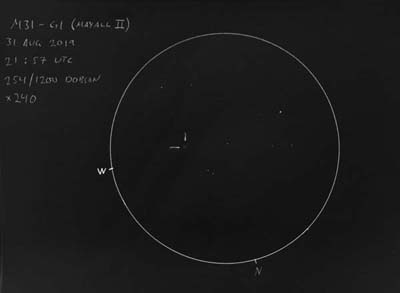 M31 - G1 (MAYALL II)
31 AUG 2019
21:57 UTC
254/1200 DOBSON
x240
W
N